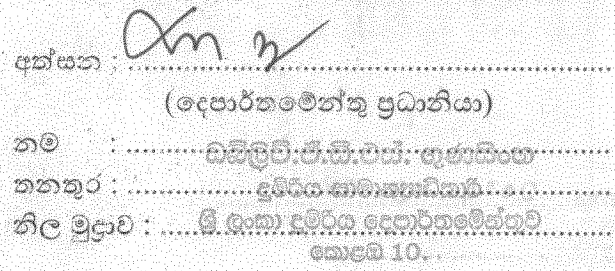 අත්සන :
(දෙපාර්තමේන්තු ප්‍රධානියා)
නම : ඩබ්ලිව්.ජී.ඩී.එස්. ගුණසිංහ
තනතුර : දුම්රිය සාමාන්‍යාධිකාරී
නිල මුද්‍රාව : ශ්‍රී ලංකා දුම්රිය දෙපාර්තමේන්තුව
කොළඹ 10.